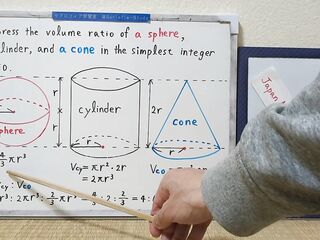 press the volume ratio of a sphere,
linder, and a cone in the simplest integer
io.
r
r
r
r
cylinder
r
2r
cone
r
phere
4/3 πr³
Vcy = πr²・2r
= 2πr³
Vco
cy : Vco
r³ : 2πr³ : 2/3 πr³ = 4/3 : 2 : 2/3 = 4 :
Japan